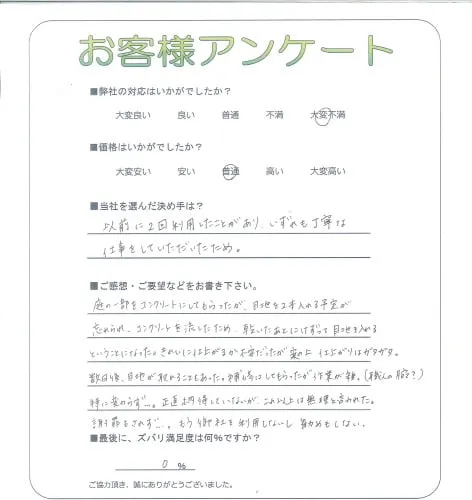 お客様アンケート
■弊社の対応はいかがでしたか？
大変良い 良い 普通 不満 大変不満
■価格はいかがでしたか？
大変安い 安い 普通 高い 大変高い
■当社を選んだ決め手は？
以前に2回利用したことがあり、いずれも丁寧な
仕事をしていただいたため。
■ご感想・ご要望などをお書き下さい。
庭の一部をコンクリートにしてもらったが、目地を2本入れる予定が
忘れられ、コンクリートを流したため、乾いたあとにけずって目地を入れる
ということになった。きれいに仕上がるか不安だったが案の上 仕上がりはガタガタ。
数日後、目地が取れることもあった。補修してもらったが作業が雑。(職人の腕？)
特に変わらず…。正直納得していないが、これ以上は無理と言われた。
謝罪もされず…。もう御社を利用しないし 勧めもしない。
■最後に、ズバリ満足度は何％ですか？
0 ％
ご協力頂き、誠にありがとうございました。